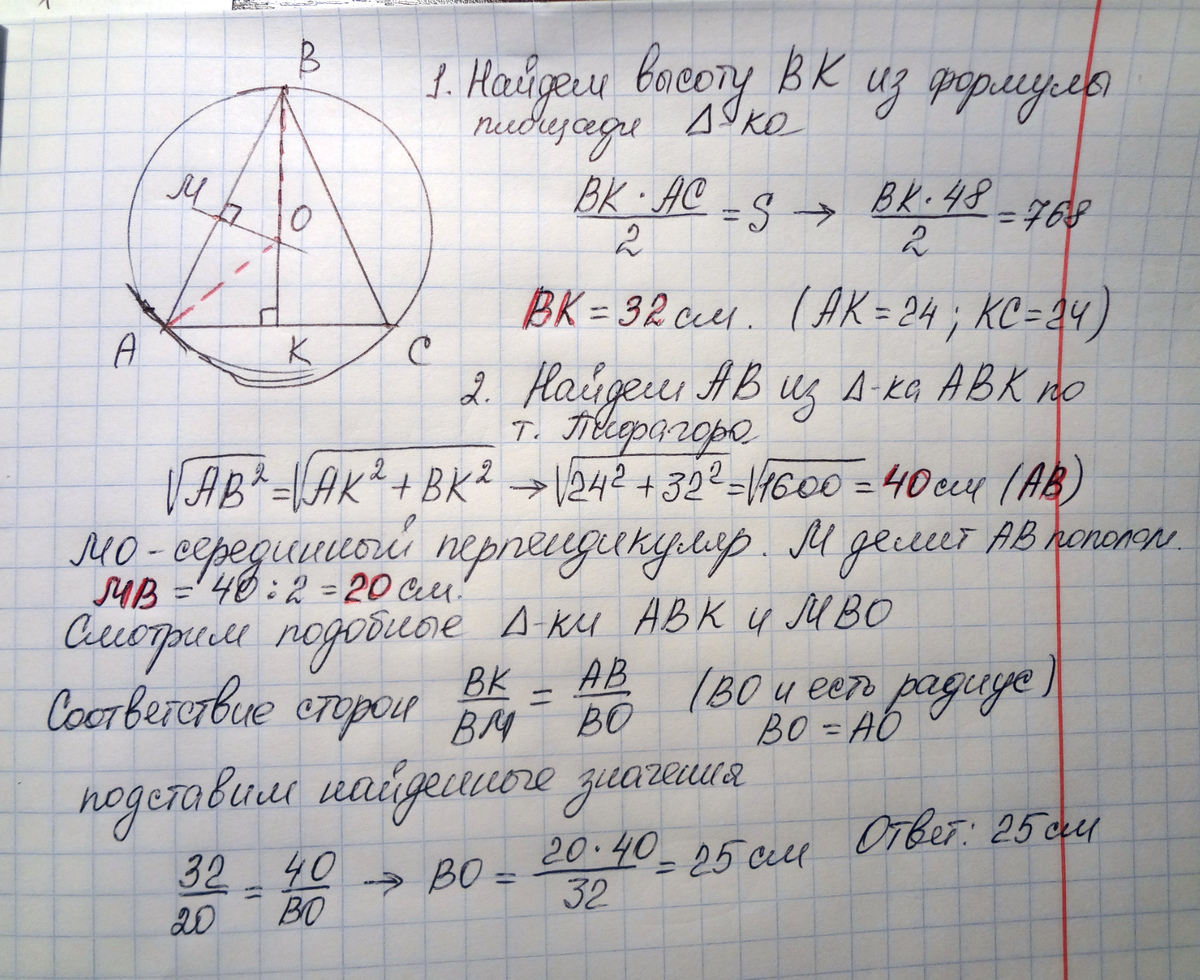 B
M
O
A
K
C
1. Найдем высоту BK из формулы
площади Δ-ка
BK · AC / 2 = S → BK · 48 / 2 = 768
BK = 32 см. (AK = 24 ; KC = 24)
2. Найдем AB из Δ-ка ABK по
т. Пифагора
√AB² = √AK² + BK² → √24² + 32² = √1600 = 40 см (AB)
MO - серединный перпендикуляр. M делит AB пополам.
MB = 40 : 2 = 20 см.
Смотрим подобные Δ-ки ABK и MBO
Соответствие сторон BK / BM = AB / BO (BO и есть радиус)
BO = AO
подставим найденные значения
32 / 20 = 40 / BO → BO = 20 · 40 / 32 = 25 см Ответ: 25 см